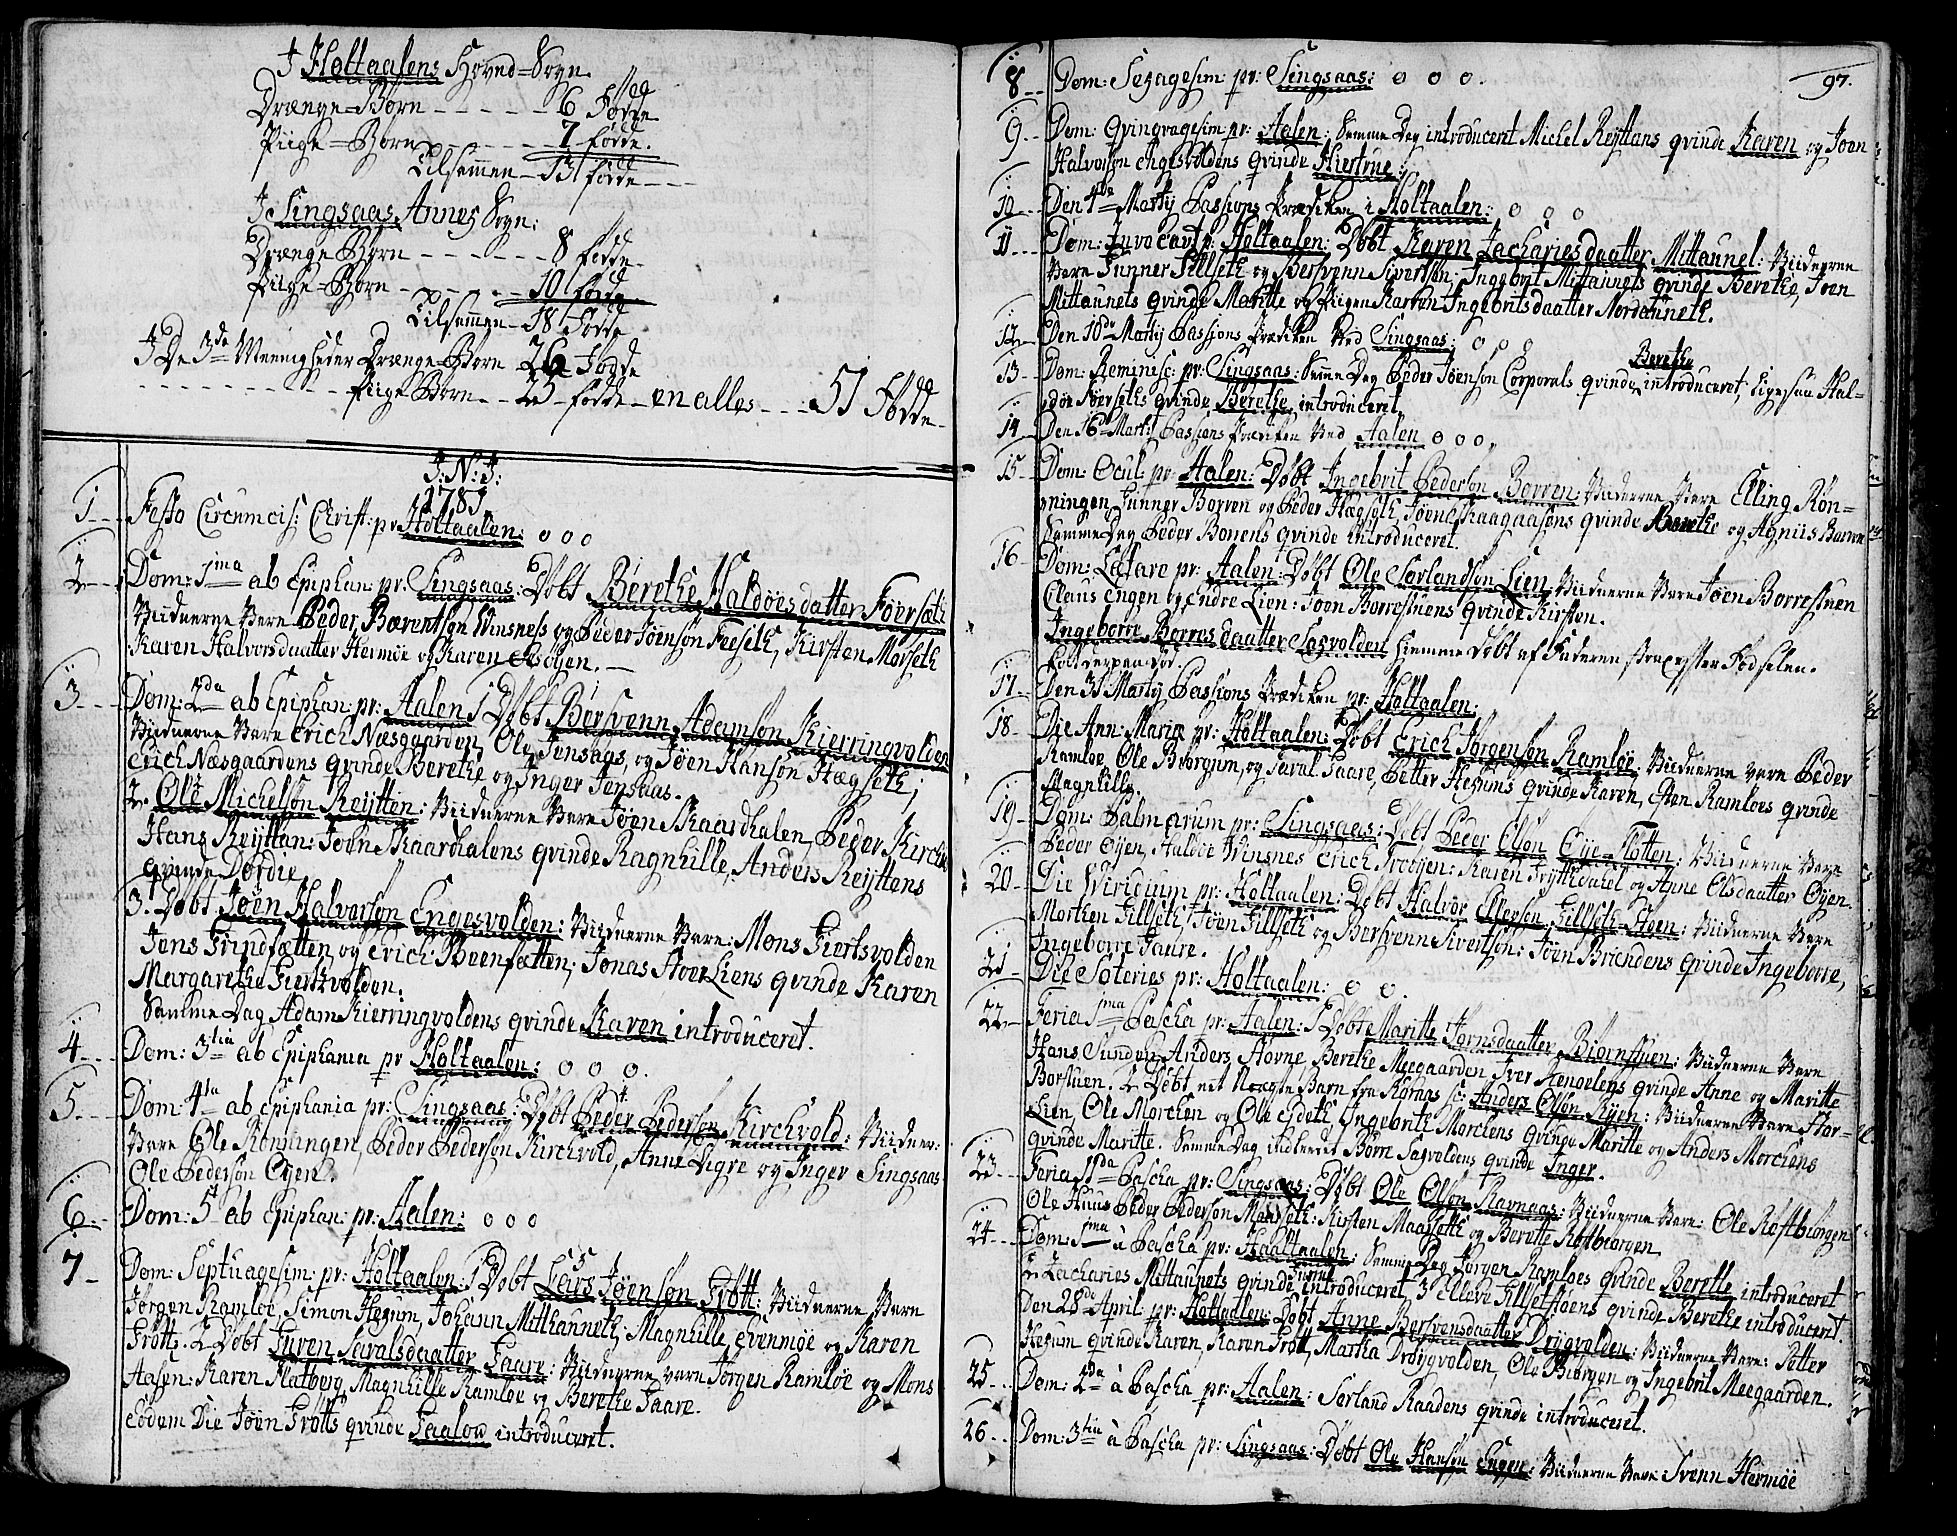 J Holtaalens Hoved=Sogn.
Drænge=Børn - - - - - - 6 Fødde
Piige=Børn - - - - - - 7 fødde.
Tilsammen - 13 fødde - - -
J Singsaas Annex Sogn:
Drænge=Børn - - - - - - 8 fødde
Piige=Børn - - - - - - 10 fødde
Tilsammen - 18 Fødde
J De 3de Meenigheder Drænge=Børn 26 Fødde
- - - - - - - - Piige Børn - - 25 fødde - en alles - - - 51 Fødde
J: N: J:
1781
1 - - Festo Circumcis: Christ: pr Holtaalen: o o o
2 - - Dom: 1ma ab Epiphan: pr: Singsaas: Døbt Berethe Haldoesdatter Foersæth
Viidnerne Vare Peder Bærentsøn Winsness og Peder Jöensön Feeseth, Kirsten Morseth
Karen Halvorsdaatter Hermöe og Karen Elsöyen. -
3 - - Dom: 2da ab Epiphan: pr: Aalen 1 Döbt Bersvenn Adamsön Kierringvolden
Viidnerne Vare Erich Næsgaarden, Ole Jensaas, og Jöen Hansön Hægseth;
Erich Næsgaardens qvinde Berethe, og Inger Jensaas.
2. Ole Michelsön Reÿtten: Viidnerne Vare Jöen Skaardhalen, Peder Kirche
Hans Reÿtten: Joen Skaardhalens qvinde Ragnhille, Anders Reyttens
qvinde Dordie.
3. Döbt Jöen Halvorsön Engesvolden: Viidnerne Vare: Mons Hiertsvolden
Jens Grindfætten og Erich Beenfætten; Jonas Hovekens qvinde Karen
Margarethe Hiertsvolden.
Samme Dag Adam Kierringvoldens qvinde Karen introduceret.
4 - - Dom: 3tia ab Epiphania pr Holtaalen: o o o.
5 - - Dom: 4ta ab Epiphania pr: Singsaas: Döbt Peder Pedersön Kirchvold: Viidner:
Vare Ole Rönningen, Peder Pedersön Kirchvold, Anne Digre og Inger Singsaas
Ole Pedersön Oyen.
6 - Dom: 5t ab Epiphan: pr: Aalen: o o o
7 - Dom: Septuagesim: pr: Holtaalen: 1 Döbt Lars Jöensön Trött: Viidnerne Vare
Jörgen Ramloe, Simon Hegum, Johann Mitthanneth: Magnhille, Evenmöe og Karen
Trött: 2 Döbt Guren Saralsdaatter Gaare: Viidnerne vare Jörgen Ramlöe og Mons
Aasen: Karen Flatberg, Magnhille Ramloe og Berethe Gaare.
eodem Die Jöen Trötts qvinde Gaalou introduceret.
97.
8 - - Dom: Sexagesim: pr: Singsaas: o o o.
9 - Dom: Qvinqvagesim pr: Aalen: Samme Dag introducent Michel Reyttans qvinde Karen og Joen
Halvorsön Engesvoldens qvinde Hiertrue.
10 - - Den 4de Martij Passions Prædiken i Holtaalen: o o o
11 - - Dom: Invocavt p: Holtaalen: Döbt Karen Zachariesdaatter Mittaunet: Viidnerne
Vare Gunner Gillseth og Bersvenn Sivertsön; Ingebrit Mittaunets qvinde Berethe, Joen
Mittaunets qvinde Maritte og Piigen Karren Ingebritsdaatter Nordauneth.
12 - Den 10de Martij Passions Prædiken Ved Singsaas: o o o
13 - Dom: Reminisc: pr: Singsaas: Samme Dag Peder Jöensön Corporals qvinde Berethe introduceret, Ligesaa Hal=
döe Foerseths qvinde Berethe introduceret.
14 - Den 16de Martij Passions Prædiken Ved Aalen o o o.
15 - Dom: Oculi pr: Aalen: Döbt Ingebrit Pedersön Borren: Viidnerne Vare Elling Rön=
ningen Gunner Borren og Peder Hægseth, Jöen Skaagaasens qvinde Berethe og Agniis Barren
Samme Dag Peder Borrens qvinde introduceret.
16 - Dom: Lætare pr: Aalen: Döbt Ole Sorlandsön Lien. Viidnerne Vare Jöen Borrestuen
Claus Engen og Endre Lien: Joen Borrestuens qvinde Kirsten.
Ingeborre Borresdaatter Sagvolden hiemme döbt af Faderen strax efter Födselen.
og derpaa Död.
17 - Den 31 Martij Passions Prædiken pr: Holtaalen:
18 - Die Ann: Mariæ pr: Holtaalen: Döbt Erich Jörgensön Ramlöe: Viidnerne vare Peder
Ramloe, Ole Björgum, og Saral Gaare, Petter Hegums qvinde Karen, Esten Ramloes qvinde
Magnhille.
19 - Dom: Palmarum pr: Singsaas: Döbt Peder Elsön Oye=Flötten: Viidnerne Vare
Peder Oyen, Haldoe Winsnes Erich Froöyen: Karen Frythdahel og Anne Elsdaatter Oyen.
20 - Die Viridium pr: Holtaalen: Döbt Halvor Ellefsen Gillseth Stoen: Viidnerne Vare
Morthen Gillseth, Jöen Gillseth og Bersvenn Sivertsön: Jöen Brændens qvinde Ingeborre,
Ingeborre Gaare.
21 - Die Soteries pr: Holtaalen: o o.
22 - Feria 1ma Pascha pr: Aalen: 1 Döbt Maritte Jörnsdaatter Biörnstuen: Viidnerne Vare
Hans Sunden Anders Hovne Berethe Meegaarden Iver Hengelens qvinde Anne og Maritte
Borstuen. 2 Döbt net Uægte Barn fra Röraas sc: Anders Olsön Ryen: Viidnerne Vare Hor=
Lien, Ole Morchen og Ole Eideth, Ingebrit Morchens qvinde Maritte og Anders Morchens
qvinde Maritte. Samme Dag indleedet Börre Sagvoldens qvinde Inger.
23 - Feria 2da Pascha pr: Singsaas: Döbt Ole Olsön Ravnaas: Viidnerne Vare: Ole Röstbiorgen
Ole Huus Peder Pedersön Maaseth: Kirsten Maaseth og Berette Röstbiorgen
24 - Dom: 1ma à Pascha pr: Haaltaalen: Samme Dag Jörgen Ramloes qvinde Berette introduceret
2 Zacharies Mittaunets qvinde introduceret, 3 Elleve Gillset Stöens qvinde Berethe introduceret
Den 28de April pr: Holtaalen: Döbt Anne Bersvensdaatter Dröjvolden: Viidnerne Vare: Petter
Hegum qvinde Karen, Karen Trött, Martha Dröygvolden, Ole Biorgen og Ingebrit Meegaarden.
25 - Dom: 2da à Pascha pr: Aalen: Sorland Raadens qvinde introduceret.
26 - - Dom: 3tia à Pascha pr: Singsaas: Döbt Ole Hansön Engen: Viidnerne Vare: Svenn Hermöe